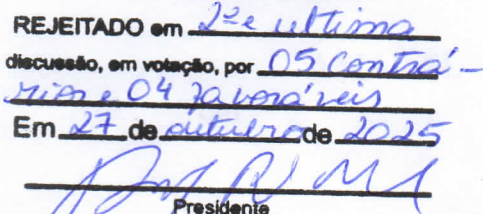 REJEITADO em 2ª e ultima
discussão, em votação, por 05 contrá-
rios e 04 favoráveis
Em 27 de outubro de 2025
Presidente